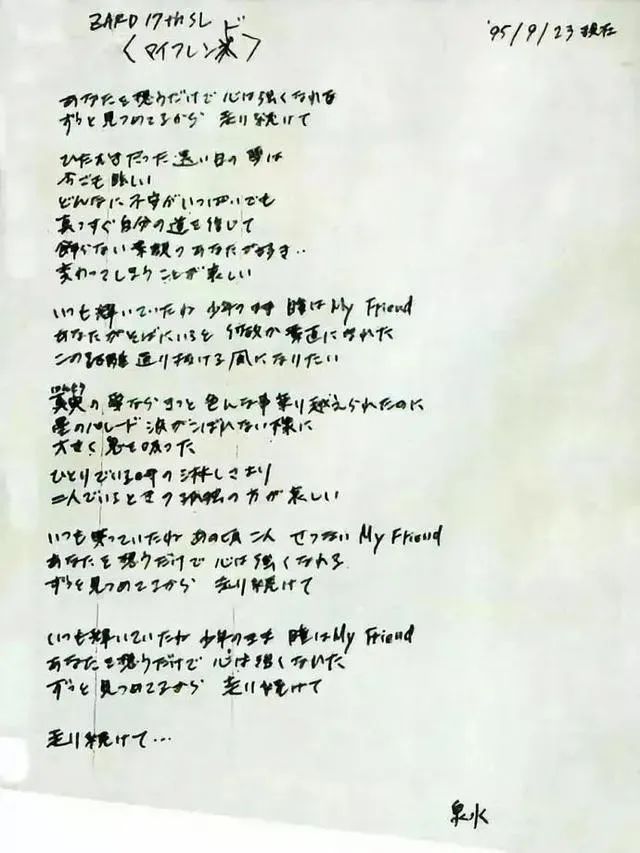 ZARD 17th SL
〈マイフレンド〉
'95/9/23 現在
あなたを想うだけで 心は強くなれる
ずっと見つめてるから 走り続けて
ひたむきだった 遠い日の夢は
今でも眩しい
どんなに不安がいっぱいでも
真っすぐ自分の道を信じて
飾らない素顔のあなたが好き..
変わってしまうことが哀しい
いつも輝いていたね 少年のまま 瞳はMy Friend
あなたがそばにいると 何故か素直になれた
この距離 通り抜ける 風になりたい
真実の夢ならきっと 色んな事乗り越えられたのに
星のパレード 涙がこぼれない様に
大きく息を吸った
ひとりでいる時の淋しさより
二人でいるときの孤独の方が哀しい
いつも笑っていたね あの頃 二人 せつない My Friend
あなたを想うだけで 心は強くなれる
ずっと見つめてるから 走り続けて
いつも輝いていたね 少年のまま 瞳はMy Friend
あなたを想うだけで 心は強くなれた
ずっと見つめてるから 走り続けて
走り続けて…
泉水